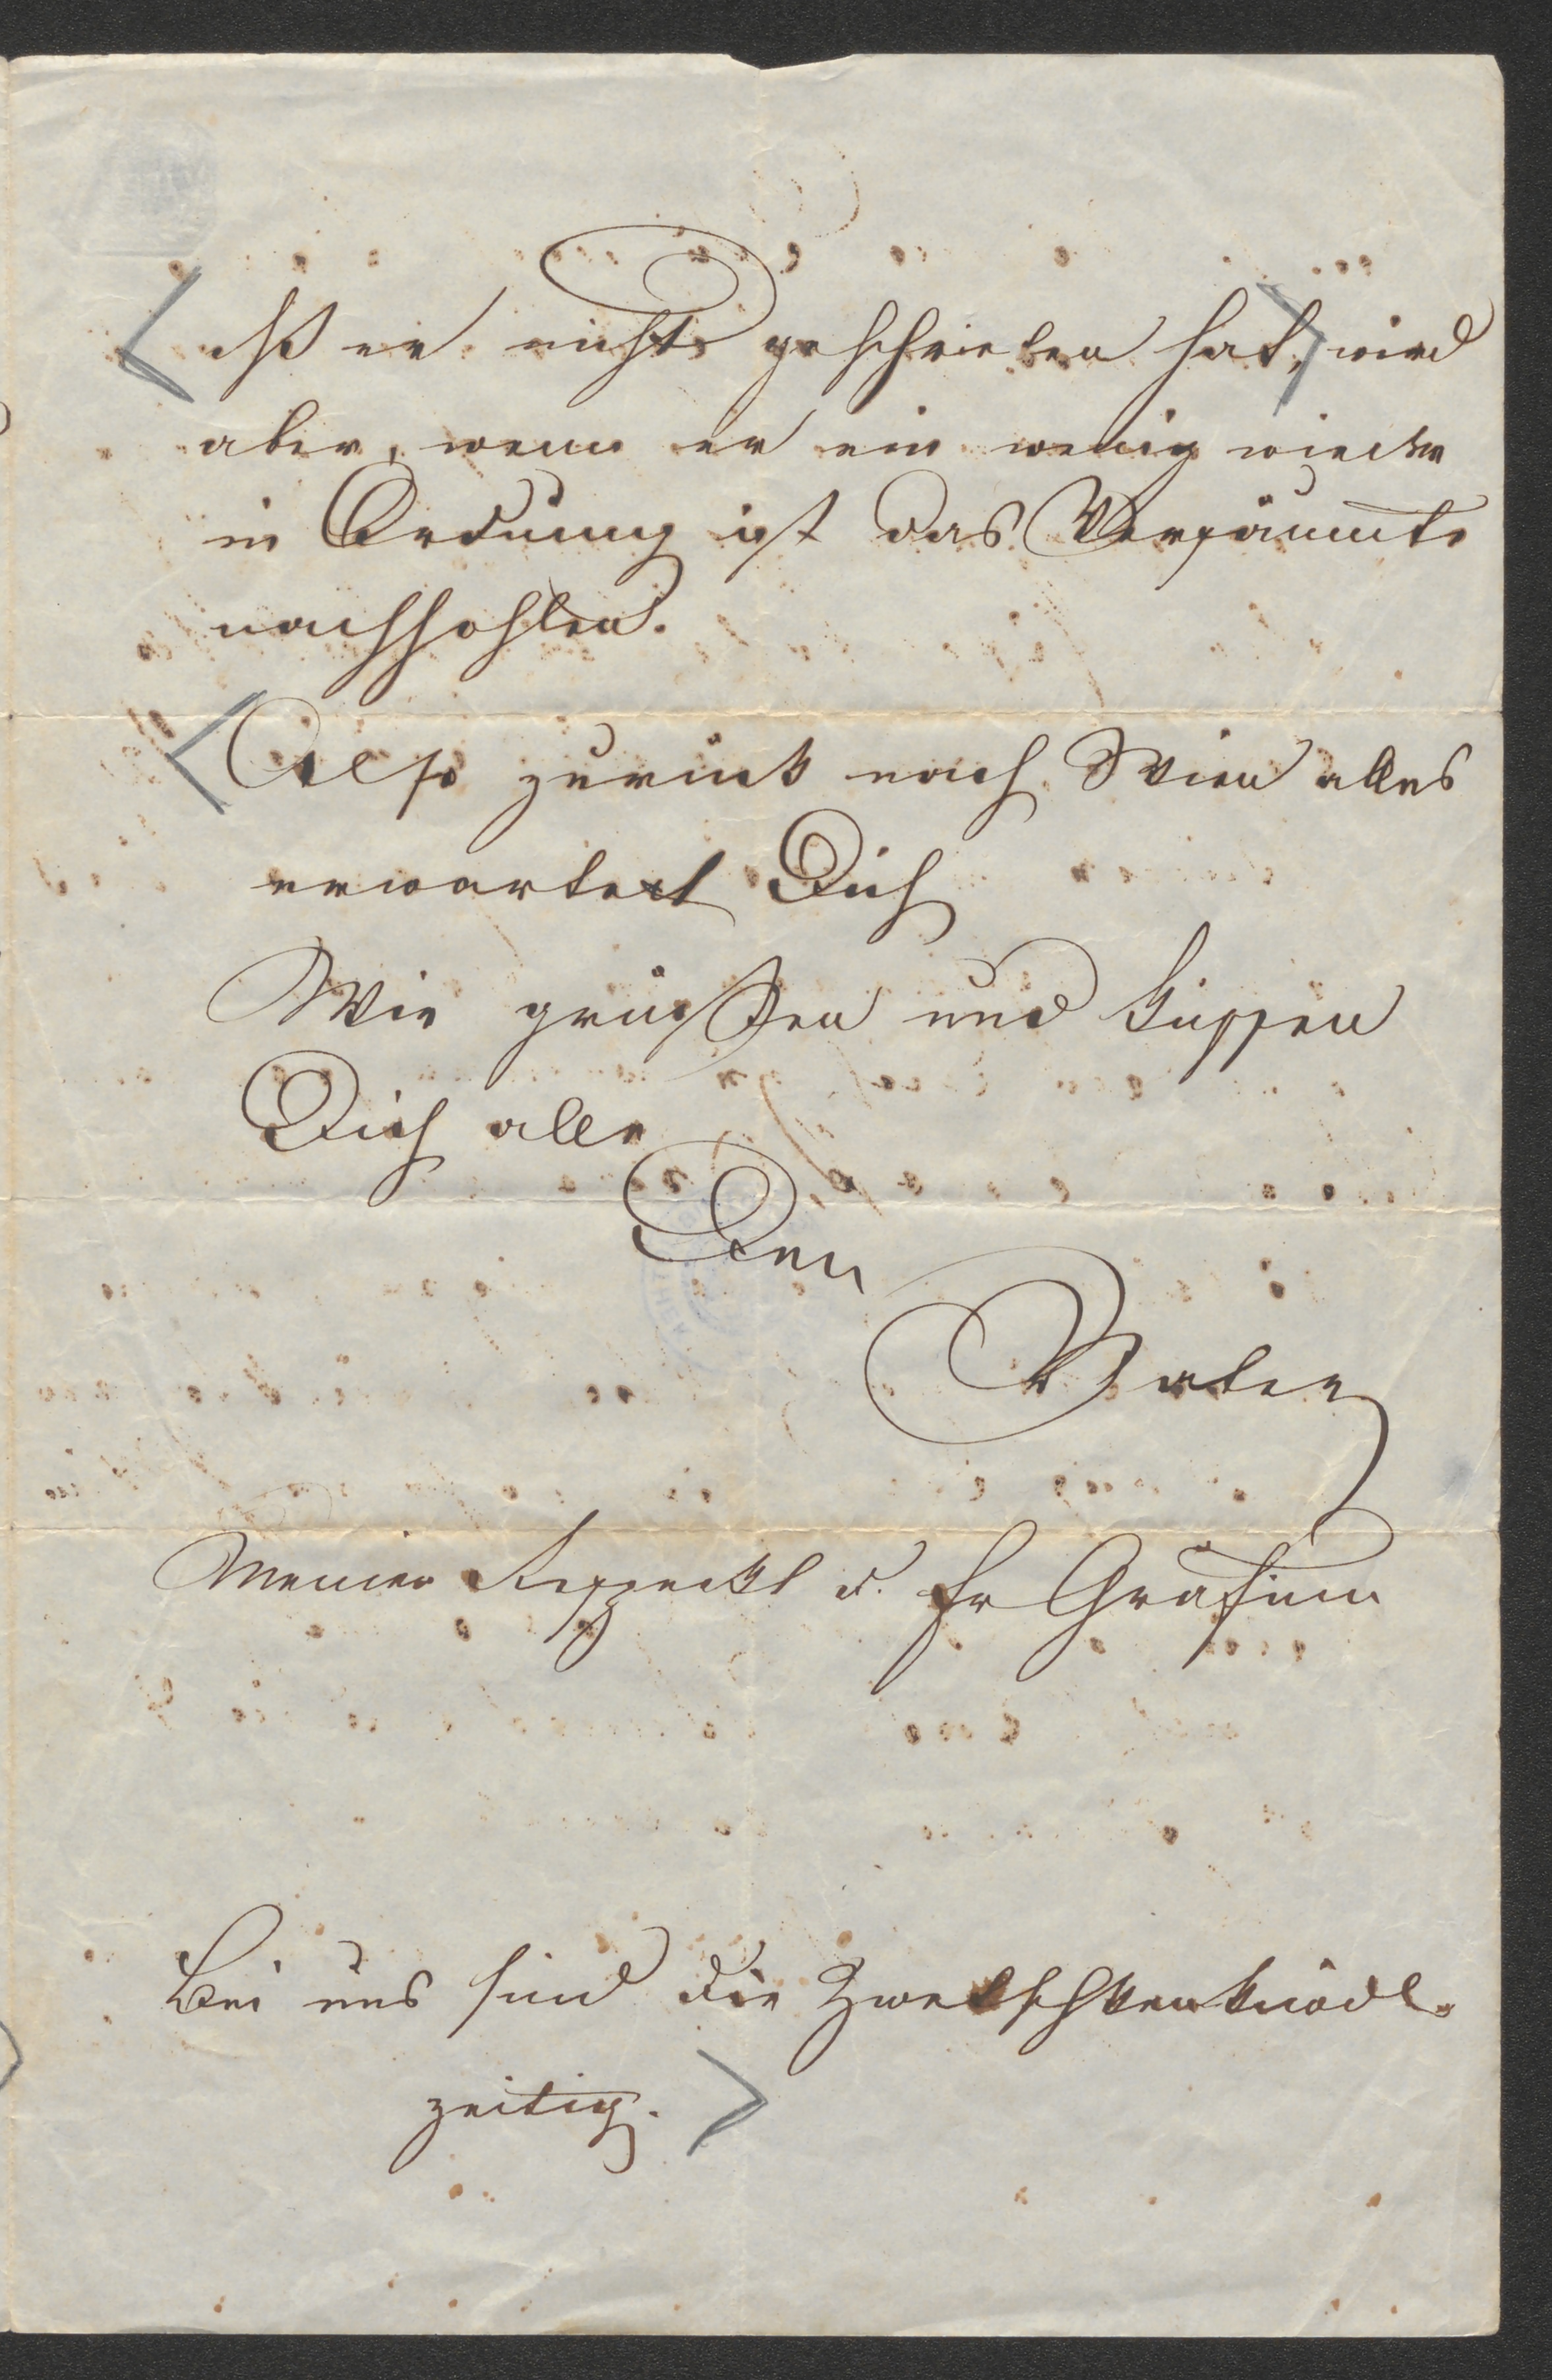 daß er nichts geschrieben hat, wird
aber, wenn er ein wenig wieder
in Ordnung ist das Versäumte
nachhohlen.
Also zurück nach Wien alles
erwartet Dich
Wir grüßen und küssen
Dich alle
Dein
Vater
Meinen Respeckt d. Fr Gräfinn
Bei uns sind die Zwetschkenknödl
zeitig.